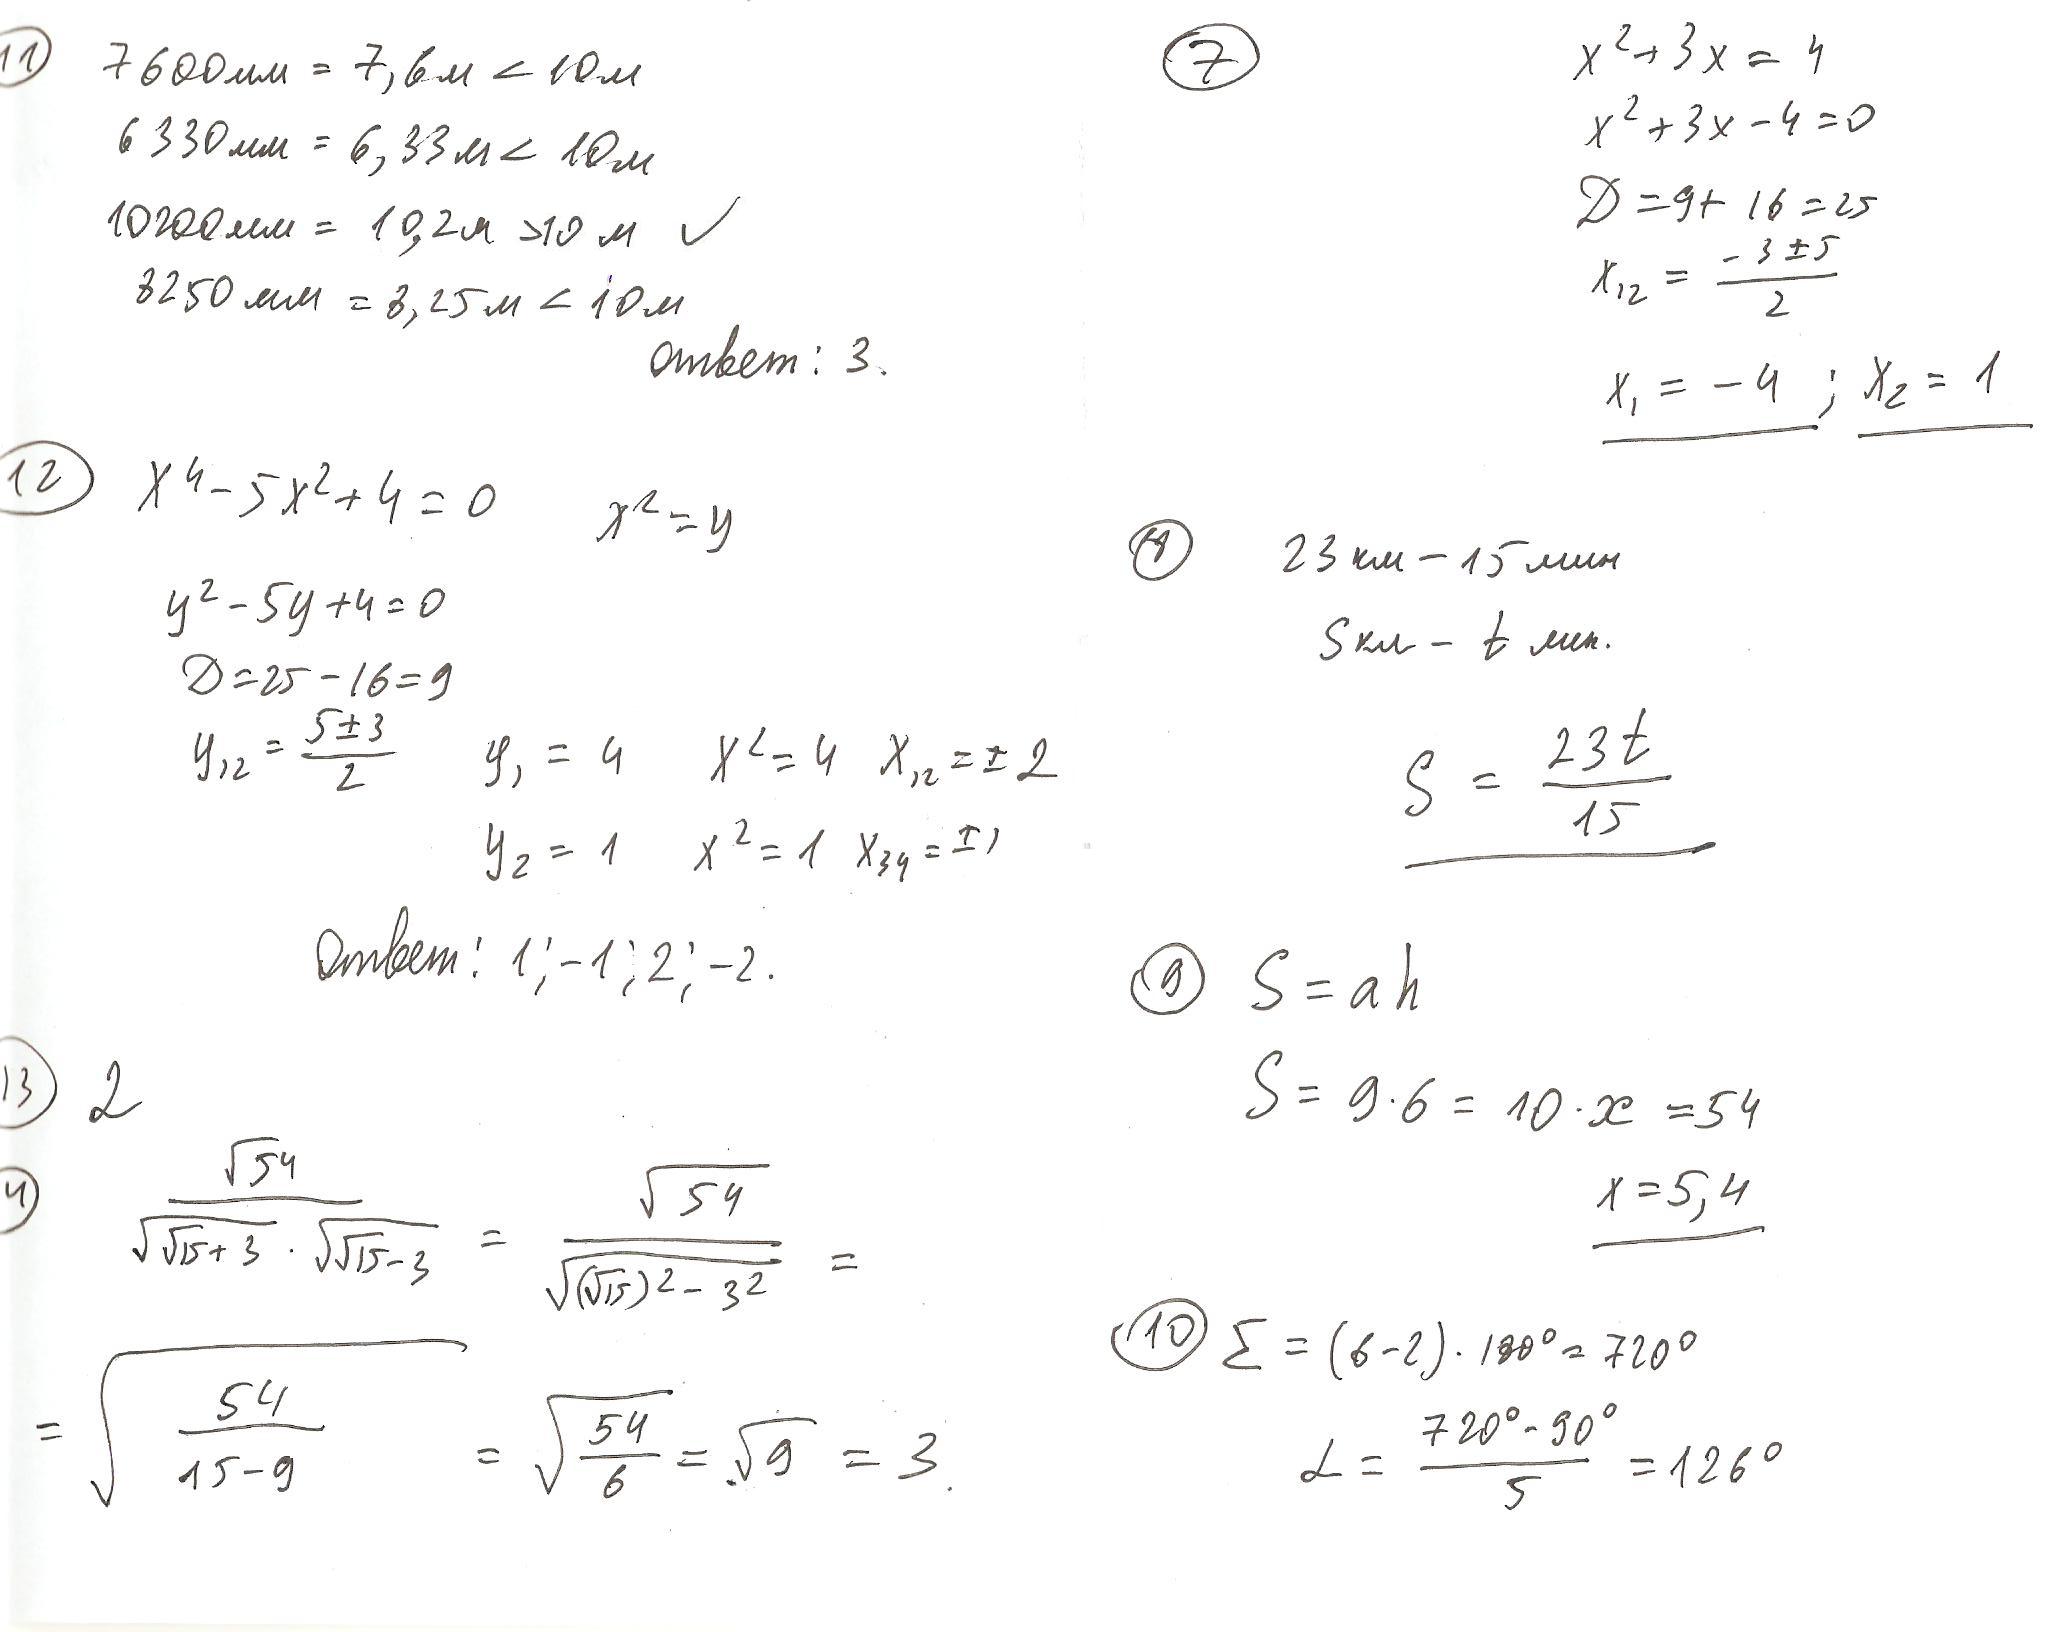 11 7600мм = 7,6м < 10м
6330мм = 6,33м < 10м
10200мм = 10,2м >10 м ✓
8250мм = 8,25м < 10м
Ответ: 3.
12 x⁴ - 5x² + 4 = 0 x² = y
y² - 5y + 4 = 0
D = 25 - 16 = 9
y₁₂ = (5 ± 3)/2 y₁ = 4 x² = 4 x₁₂ = ± 2
y₂ = 1 x² = 1 x₃₄ = ±1
Ответ: 1; -1; 2; -2.
13 2
√54/(√(√15 + 3) · √(√15 - 3)) = √54/√((√15)² - 3²) =
= √(54/(15 - 9)) = √(54/6) = √9 = 3.
7 x² + 3x = 4
x² + 3x - 4 = 0
D = 9 + 16 = 25
x₁₂ = (-3 ± 5)/2
x₁ = -4 ; x₂ = 1
23 км - 15 мин
S км - t мин.
S = 23t/15
9 S = ah
S = 9·6 = 10·x = 54
x = 5,4
10 Σ = (6-2)·180° = 720°
α = (720° - 90°)/5 = 126°